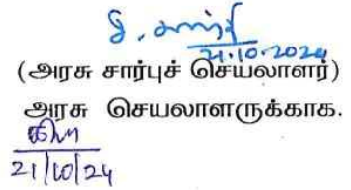 21.10.2024
(அரசு சார்புச் செயலாளர்)
அரசு செயலாளருக்காக.
21/10/24